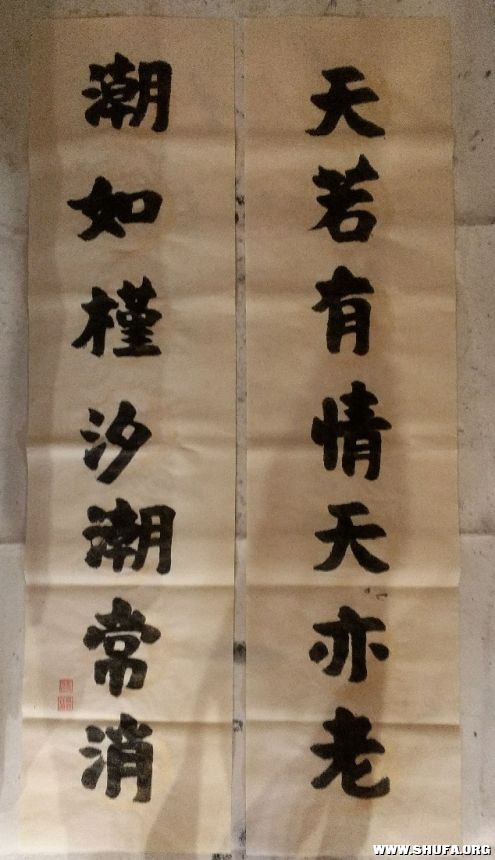 天若有情天亦老
潮如槿汐潮常消
WWW.SHUFA.ORG